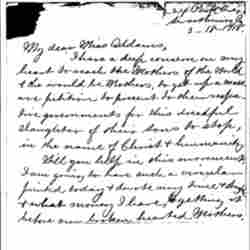 My dear Miss Addams,
I have a deep concern on my
heart to reach the Mothers of the World
& the would be Mothers, to get up a mass
petition to present to their
governments for this dreadful
slaughter of their sons to stop,
in the name of Christ & humanity
Will you help in this movement
I am going to have such a circular
printed today & devote my time &
& what money I have, getting it
before our broken hearted Mothers